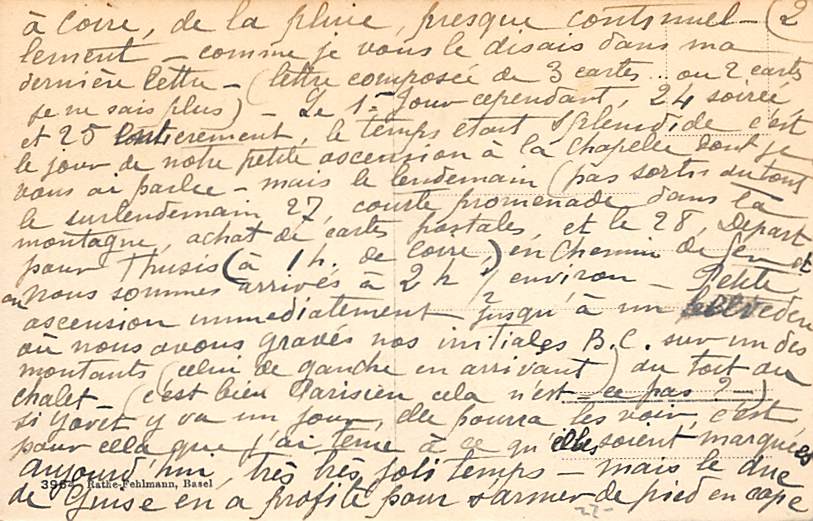 à Coire, de la pluie, presque continuel- (2
lement - comme je vous le disais dans ma
dernière lettre - (lettre composée de 3 cartes.. ou 2 cartes
je ne sais plus) - Le 1er Jour cependant, 24 soirée,
et 25 entièrement, le temps etait splendide c'est
le jour de notre petite ascension à la chapelle dont je
vous ai parlée - mais le lendemain (pas sortis du tout
le surlendemain 27, courte promenade dans la
montagne, achat de cartes postales, et le 28, Départ
pour Thusis (à 1h. de Coire,) en chemin de fer et
nous sommes arrivés à 2h, environ - Petite
ascension immédiatement jusqu'à un belvedere
où nous avons gravés nos initiales B.C. sur un des
montants (celui de gauche en arrivant) du toit du
chalet - (c'est bien Parisien cela n'est-ce pas ? -)
si y va un jour, elle pourra les voir, c'est
pour cela que j'ai tenu à ce qu'elles soient marquées
aujourd'hui, très très joli temps - mais le duc
3964 Rathe-Fehlmann, Basel
de Guise en a profité pour s'armer de pied en cape
22-